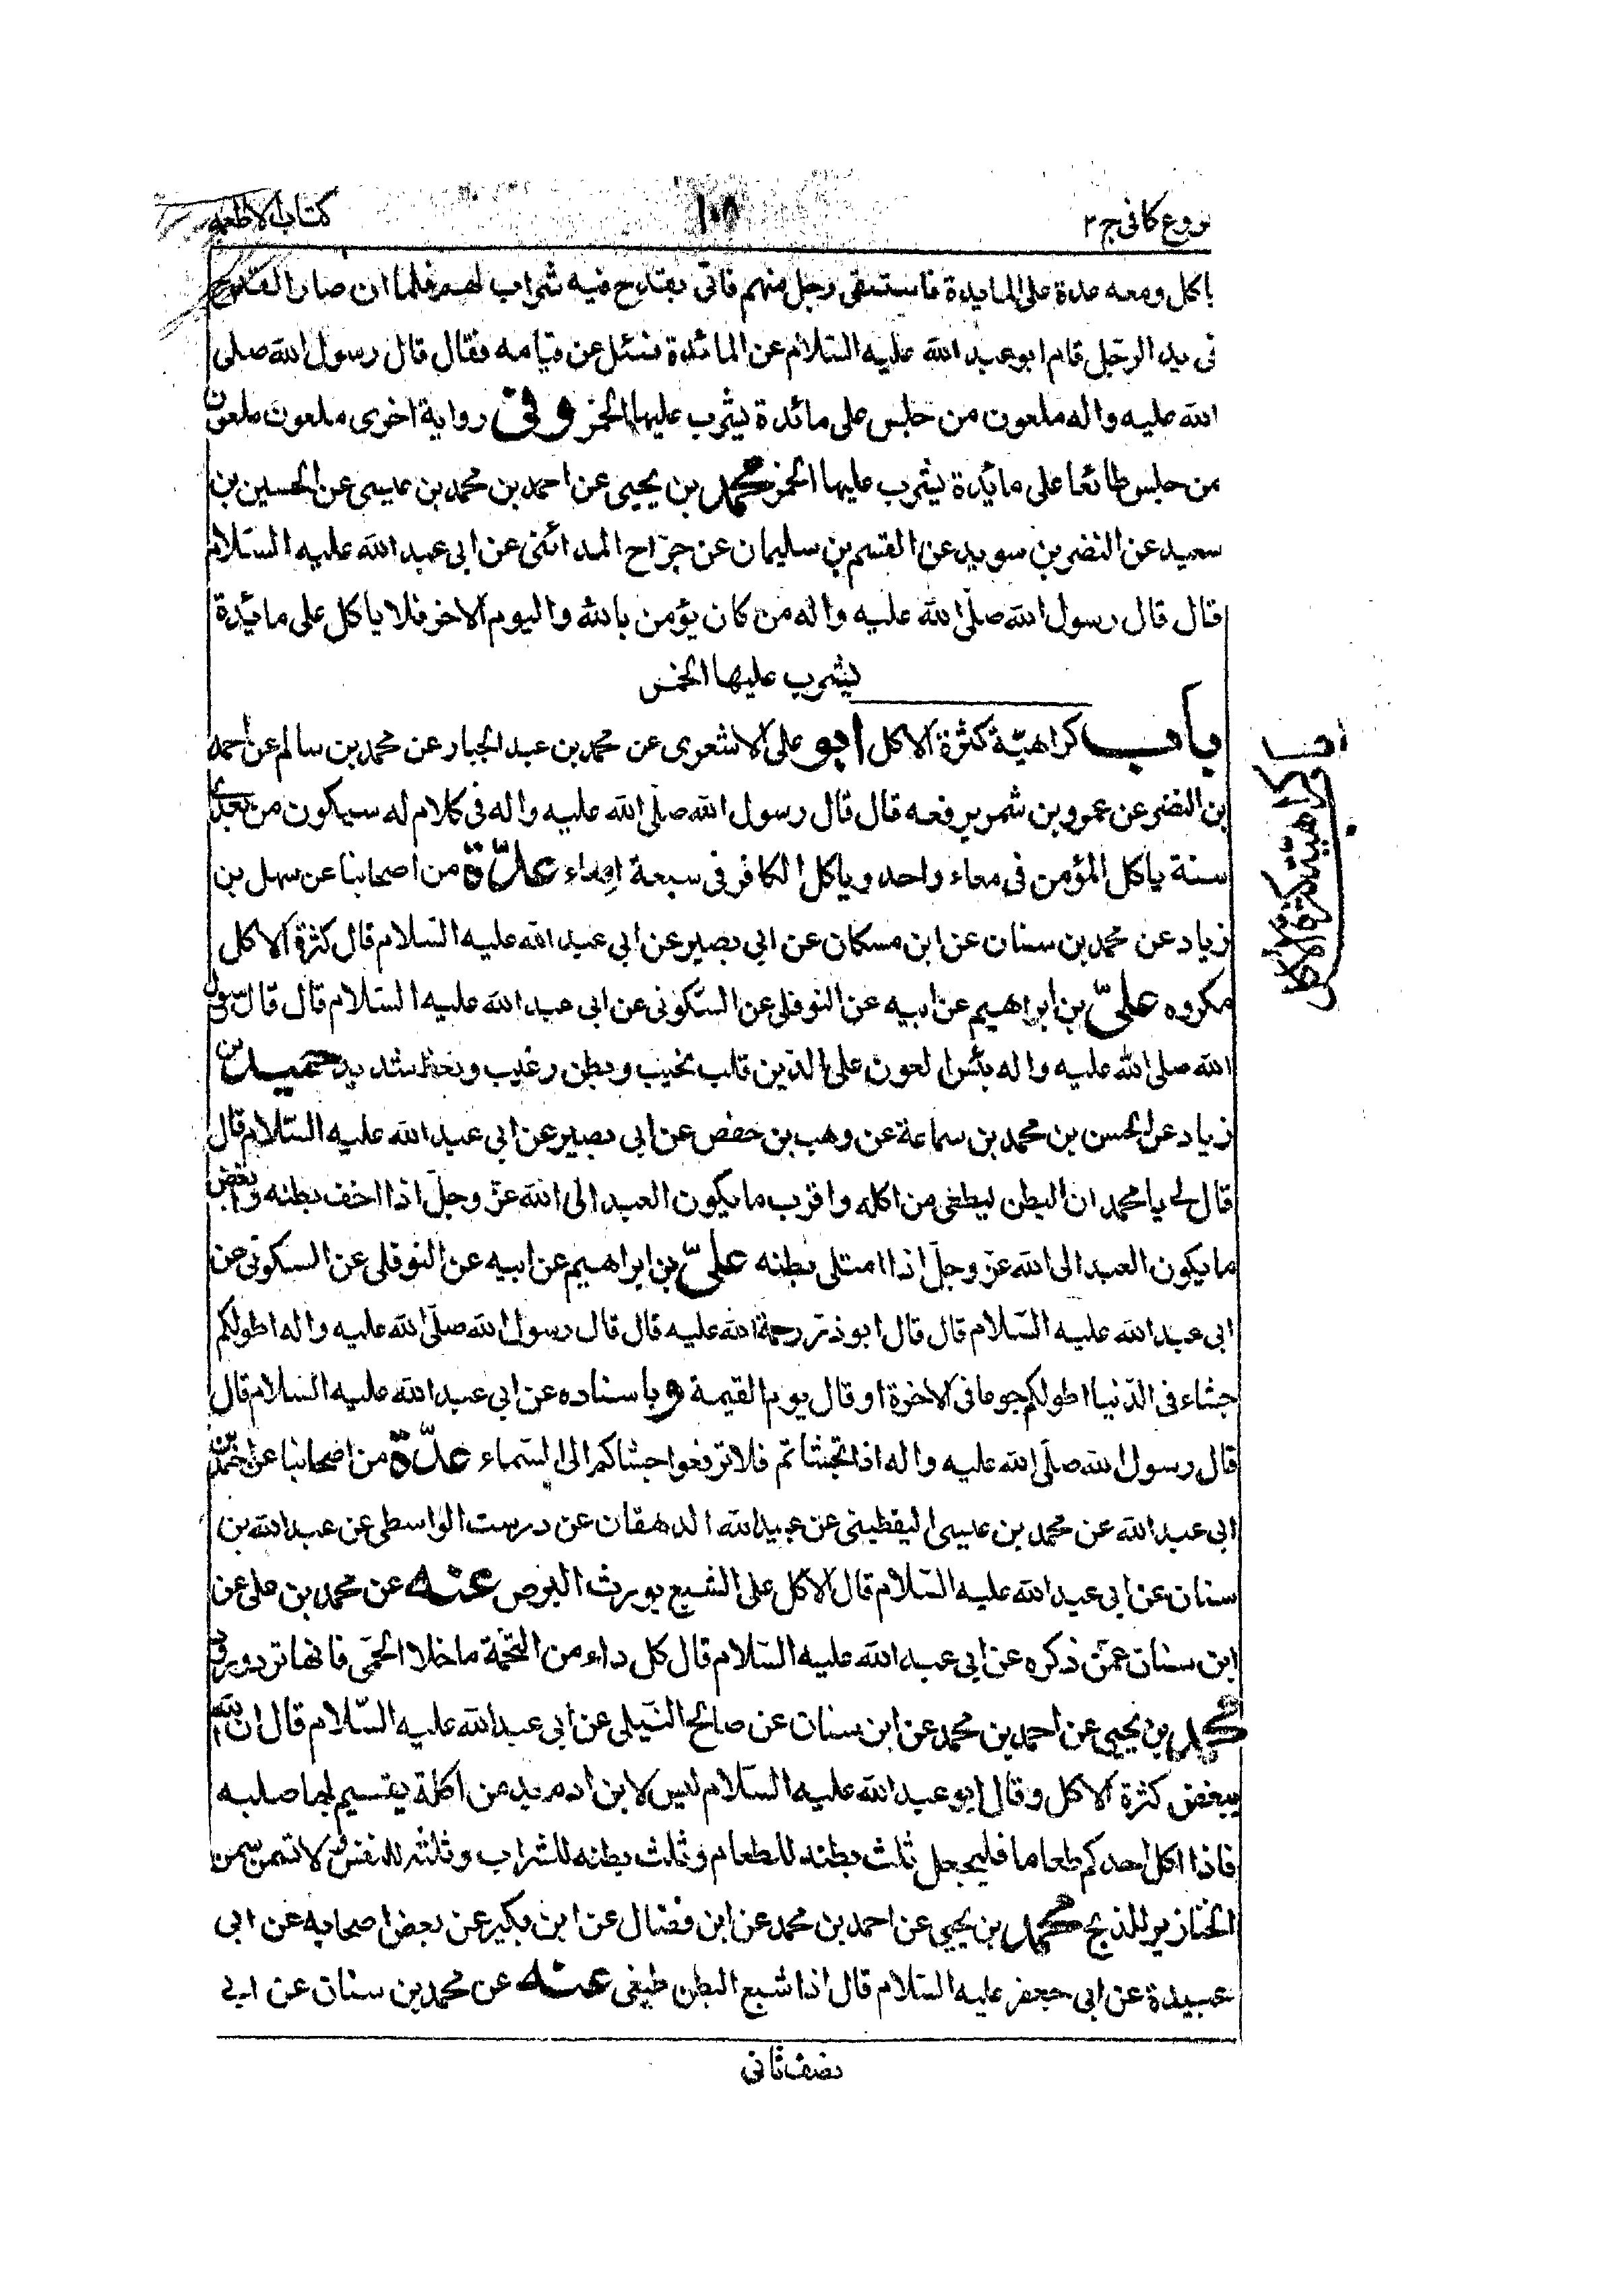 فروع كافى ج٢
١٠٨
كتاب الاطعمه
ياكل ومعه عدة على المايدة فاستسقى رجل منهم فاتى بقدح فيه شراب لهم فلما ان صار القدح
فى يد الرجل قام ابو عبد الله عليه السّلام عن المائدة فسئل عن قيامه فقال قال رسول الله صلى
الله عليه واله ملعون من جلس على مائدة يشرب عليها الخمر وفى رواية اخرى ملعون ملعون
من جلس طائعا على مائدة يشرب عليها الخمر محمد بن يحيى عن احمد بن محمد بن عيسى عن الحسين بن
سعيد عن النضر بن سويد عن القسم بن سليمان عن جرّاح المدائنى عن ابى عبد الله عليه السّلام
قال قال رسول الله صلّى الله عليه واله من كان يؤمن بالله واليوم الاخر فلا ياكل على مائدة
يشرب عليها الخمر
باب كراهيّة كثرة الاكل ابو على الاشعرى عن محمد بن عبد الجبار عن محمد بن سالم عن احمد
بن النضر عن عمرو بن شمر يرفعه قال قال رسول الله صلّى الله عليه واله فى كلام له سيكون من بعدى
سنة ياكل المؤمن فى معاء واحد وياكل الكافر فى سبعة امعاء عدّة من اصحابنا عن سهل بن
زياد عن محمد بن سنان عن ابن مسكان عن ابى بصير عن ابى عبد الله عليه السّلام قال كثرة الاكل
مكروه علىّ بن ابراهيم عن ابيه عن النوفلى عن السّكونى عن ابى عبد الله عليه السّلام قال قال رسول
الله صلى الله عليه واله بئس العون على الدّين قلب نخيب وبطن رغيب ونعظ شديد حميد بن
زياد عن الحسن بن محمد بن سماعة عن وهب بن حفص عن ابى بصير عن ابى عبد الله عليه السّلام قال
قال لى يا محمد ان البطن ليطغى من اكله واقرب ما يكون العبد الى الله عزّ وجلّ اذا اخف بطنه وابغض
ما يكون العبد الى الله عزّ وجلّ اذا امتلى بطنه علىّ بن ابراهيم عن ابيه عن النوفلى عن السكونى عن
ابى عبد الله عليه السّلام قال قال ابو ذرّ رحمة الله عليه قال قال رسول الله صلّى الله عليه واله اطولكم
جشاء فى الدّنيا اطولكم جوعا فى الاخرة او قال يوم القيمة وباسناده عن ابى عبد الله عليه السّلام قال
قال رسول الله صلّى الله عليه واله اذا تجشّاتم فلا ترفعوا جشاكم الى السّماء عدّة من اصحابنا عن احمد بن
ابى عبد الله عن محمد بن عيسى اليقطينى عن عبيد الله الدهقان عن درست الواسطى عن عبد الله بن
سنان عن ابى عبد الله عليه السّلام قال الاكل على الشبع يورث البرص عنه عن محمد بن على عن
ابن سنان عمّن ذكره عن ابى عبد الله عليه السّلام قال كل داء من التخمة ما خلا الحمّى فانها ترد ورودا
محمد بن يحيى عن احمد بن محمد عن ابن سنان عن صالح النّيلى عن ابى عبد الله عليه السّلام قال ان الله
يبغض كثرة الاكل وقال ابو عبد الله عليه السّلام ليس لابن ادم بد من اكلة يقسيم بها صلبه
فاذا اكل احدكم طعاما فليجعل ثلث بطنه للطعام وثلث بطنه للشراب وثلثه للنفس ولا تسمنوا تسمن
الخنازير للذبح محمد بن يحيى عن احمد بن محمد عن ابن فضال عن ابن بكير عن بعض اصحابه عن ابى
عبيدة عن ابى جعفر عليه السّلام قال اذا شبع البطن طغى عنه عن محمد بن سنان عن ابى
نصف ثانى
باب
كراهيّة كثرة الاكل